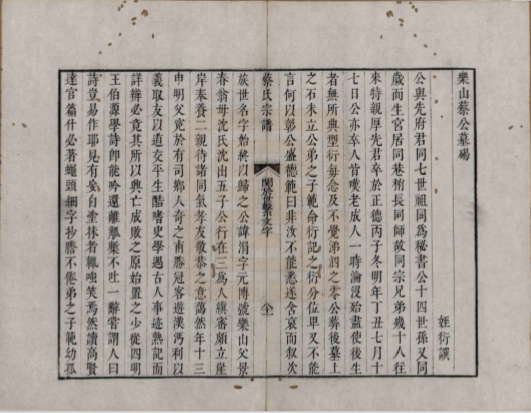 樂山蔡公墓碣
姪衍譔
公與先府君同七世祖同為秘書公十四世孫又同
歲而生宮居同巷稍長同師故同宗兄弟幾十八往
來特親厚先君卒於正德丙子冬明年丁丑七月十
七日公亦卒人皆嘆老成人一時淪沒始盡使後生
者無所典型衍每念及不覺涕泗之零公葬後墓上
之石未立公弟之子範命衍記之衍分位卑又不能
言何以彰公盛德範曰非汝不能悉遂含哀而叙次
蔡氏宗譜
關於世繫文字
族世名字始終以歸之公諱涓字元博號樂山父景
春翁母沈氏沈出五子公行在三為人縝審頎立崖
岸奉養二親待諸同氣孝友敬恭之意藹然年十三
中明父竟於有司鄉人奇之南勝冠客遊漢沔利以
義取友以道交平生酷嗜史學遇古人事迹熟記而
詳辨必竟其所以興亡成敗之原始置之少從四明
王伯源學詩即能吟還離觚槧不吐一辭嘗謂人曰
詩豈易作耶見有妄自塗抹者輒嗤笑焉然讀高賢
達官篇什必著蠅頭細字抄謄不倦弟之子範幼孤